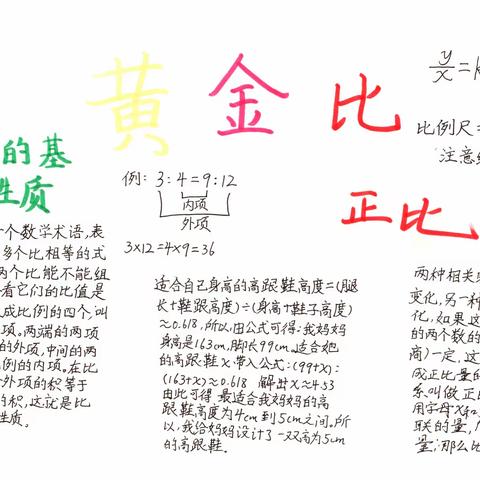 黄金比
的基
性质
一个数学术语,表
多个比相等的式
两个比能不能组
看它们的比值是
成比例的四个,叫
项。两端的两项
的外项,中间的两
例的内项。在比
外项的积等于
的积,这就是比
性质。
例: 3:4=9:12
内项
外项
3×12=4×9=36
适合自己身高的高跟鞋高度=(腿
长+鞋跟高度)÷(身高+鞋子高度)
≈0.618,所以由公式可得:我妈妈
身高是163cm,脚长99cm。适合她
的高跟鞋x带入公式:(99+x):
(163+x)≈0.618 解出x≈4.53
由此可得 最适合我妈妈的高
跟鞋高度为4cm到5cm之间。所
以,我给妈妈设计了一双高为5cm
的高跟鞋。
y/x=k
比例尺=
注意
正比
两种相关
变化,另一种
化,如果这
的两个数的
商)一定,这
成正比量的
系叫做正比
用字母x和
联的量,
量;那么比